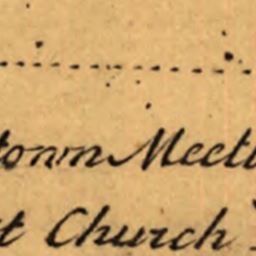 town Meeti
t Church